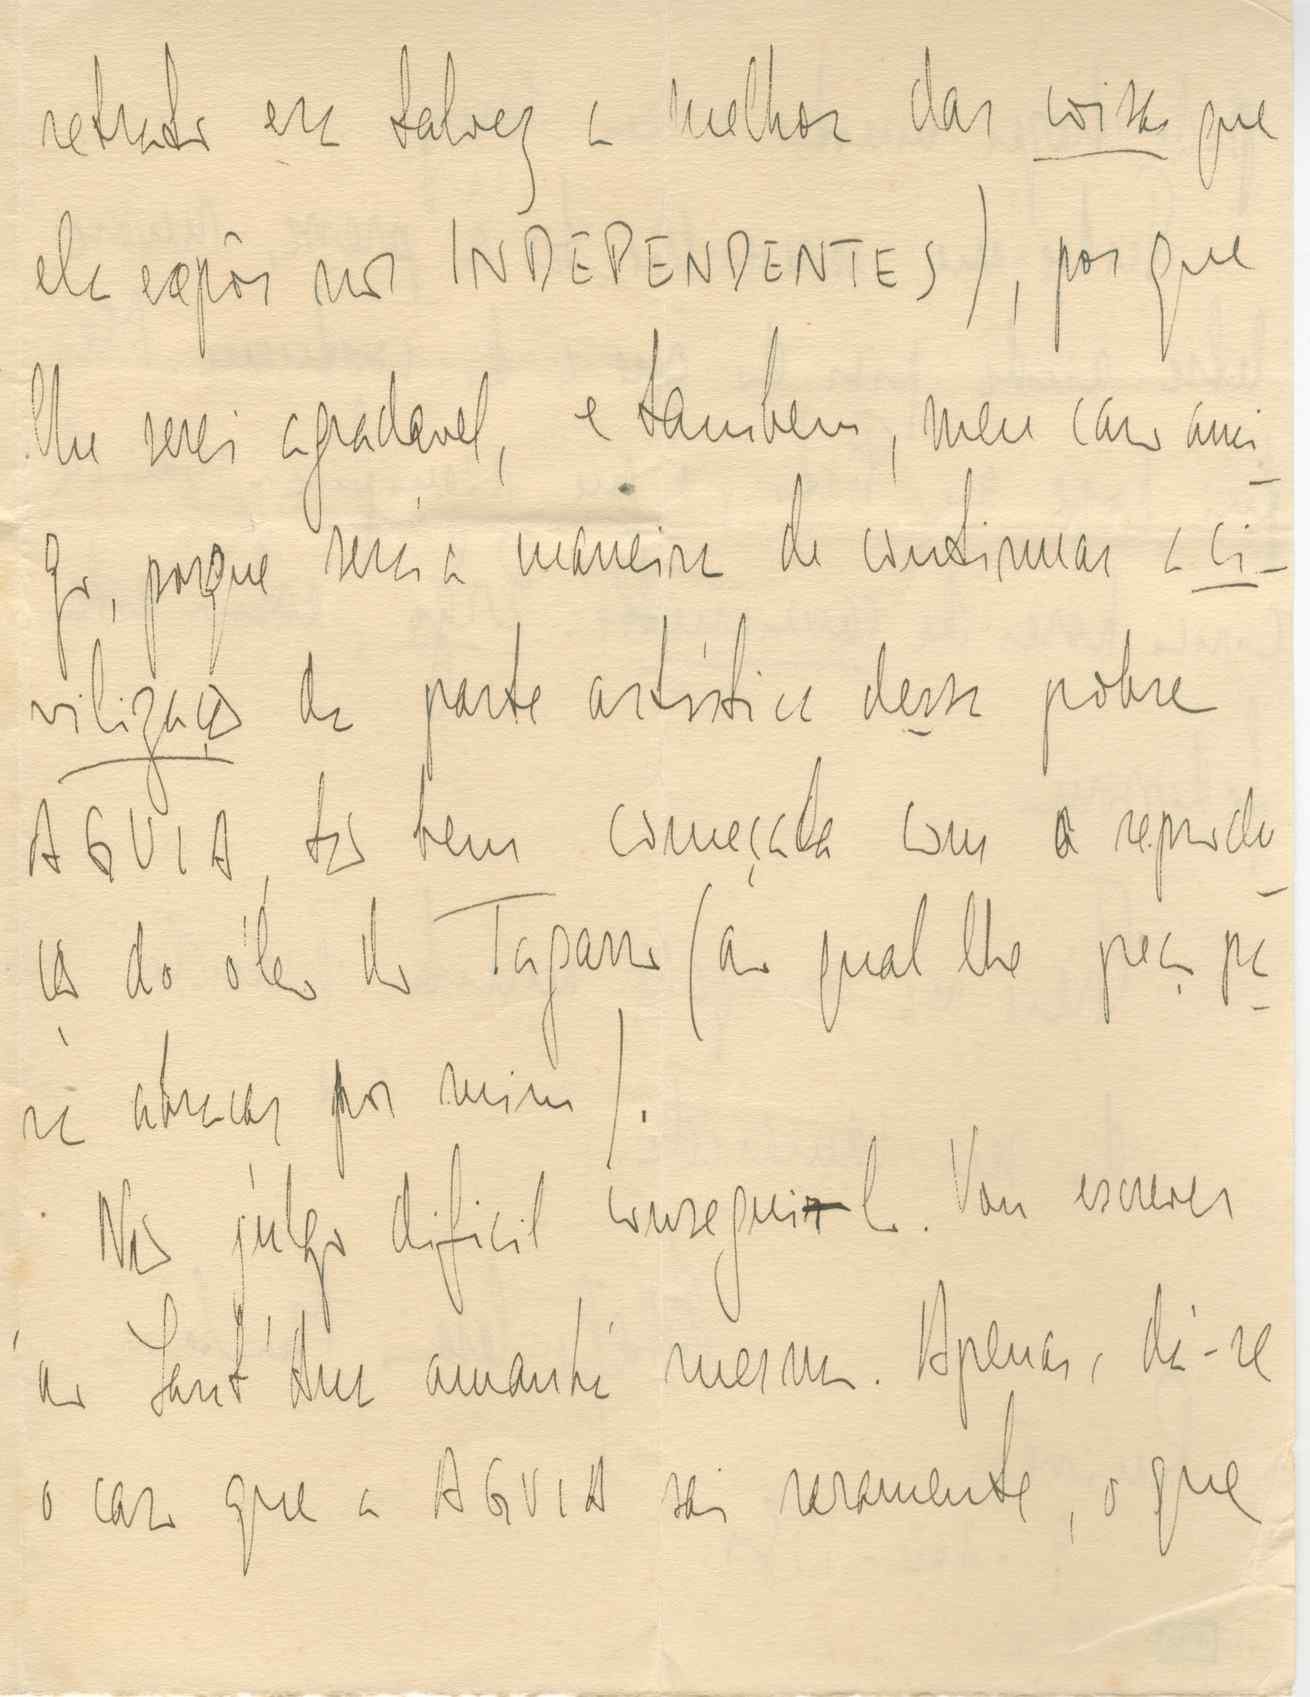 retrato era talvez a melhor das coisas que
ela expôs nos INDEPENDENTES), por que
lhe serei agradavel, e tambem, meu caro ami-
go, porque será a maneira de continuar a ci-
vilização da parte artística dessa pobre
AGUIA, tão bem começada com a reprodu-
ção do óleo do Tagarro (ao qual lhe peço pa-
ra abraçar por mim).
Não julgo dificil consegui-lo. Vou escrever
ao Sant'Ana amanhã mesmo. Apenas, dá-se
o caso que a AGUIA sai raramente, o que